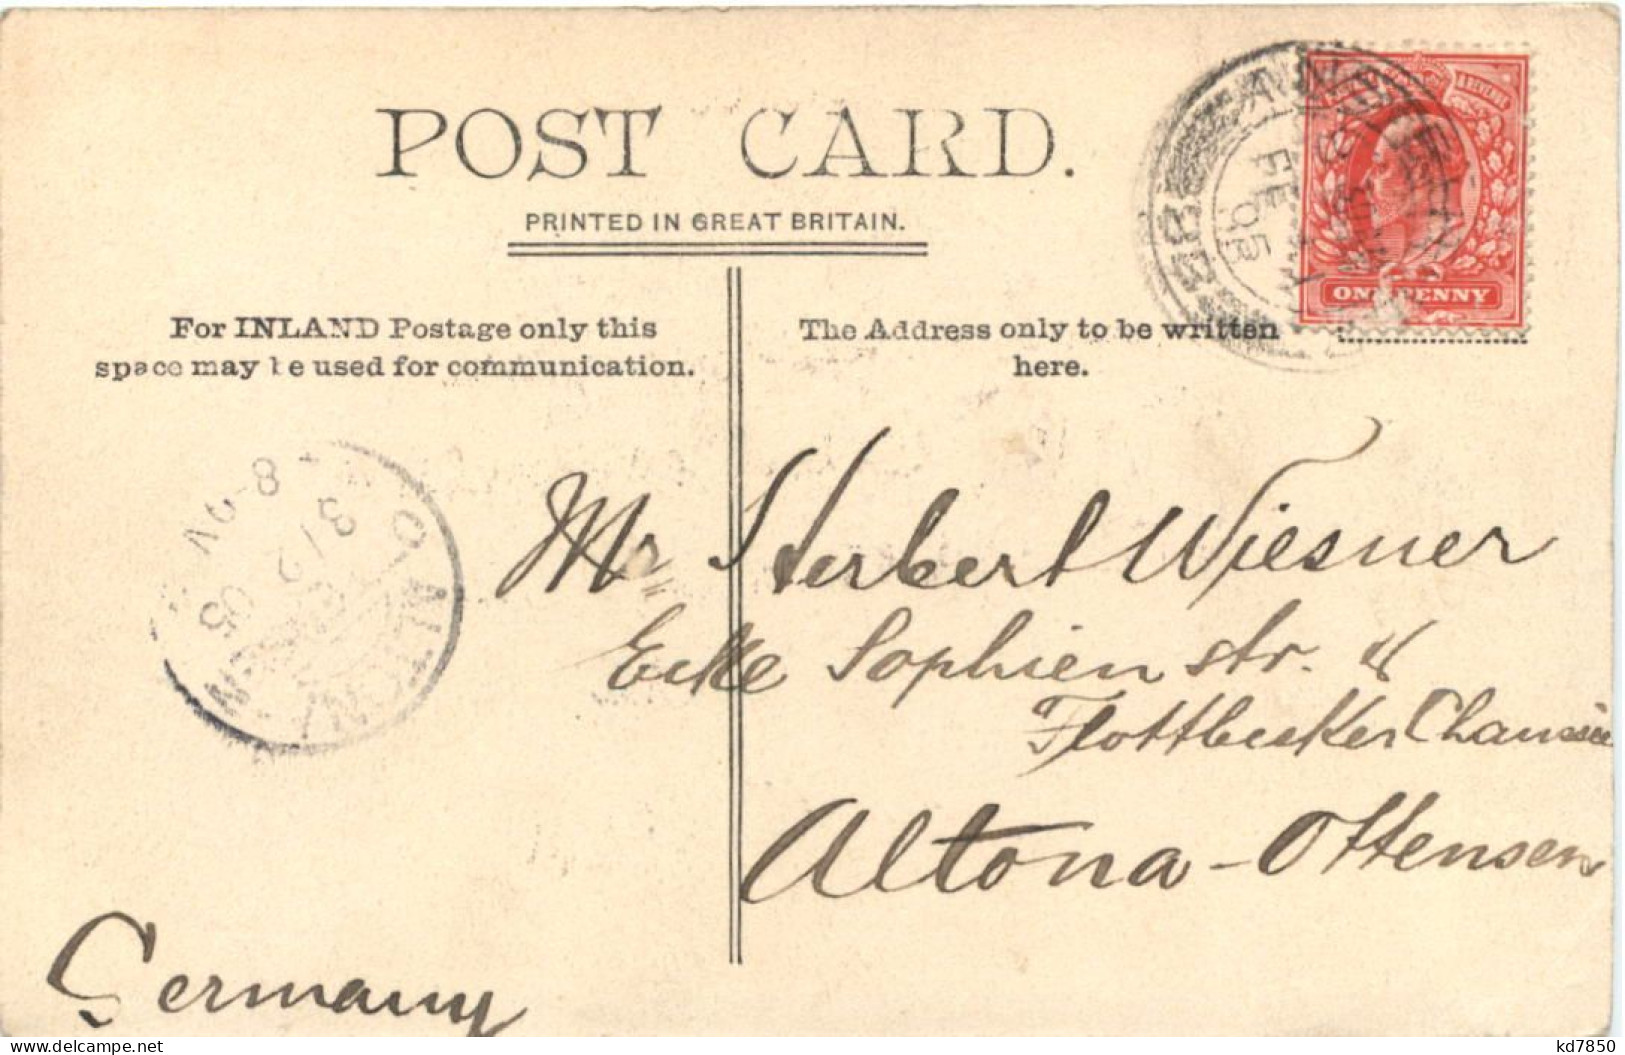 POST CARD.
PRINTED IN GREAT BRITAIN.
For INLAND Postage only this
space may be used for communication.
The Address only to be written
here.
ONE PENNY
Mr Herbert Wiesner
Ecke Sophienstr. &
Flottbecker Chaussee
Altona-Ottensen
Germany
ALTONA
8-9V
3/2
05
FE
05
kd7850